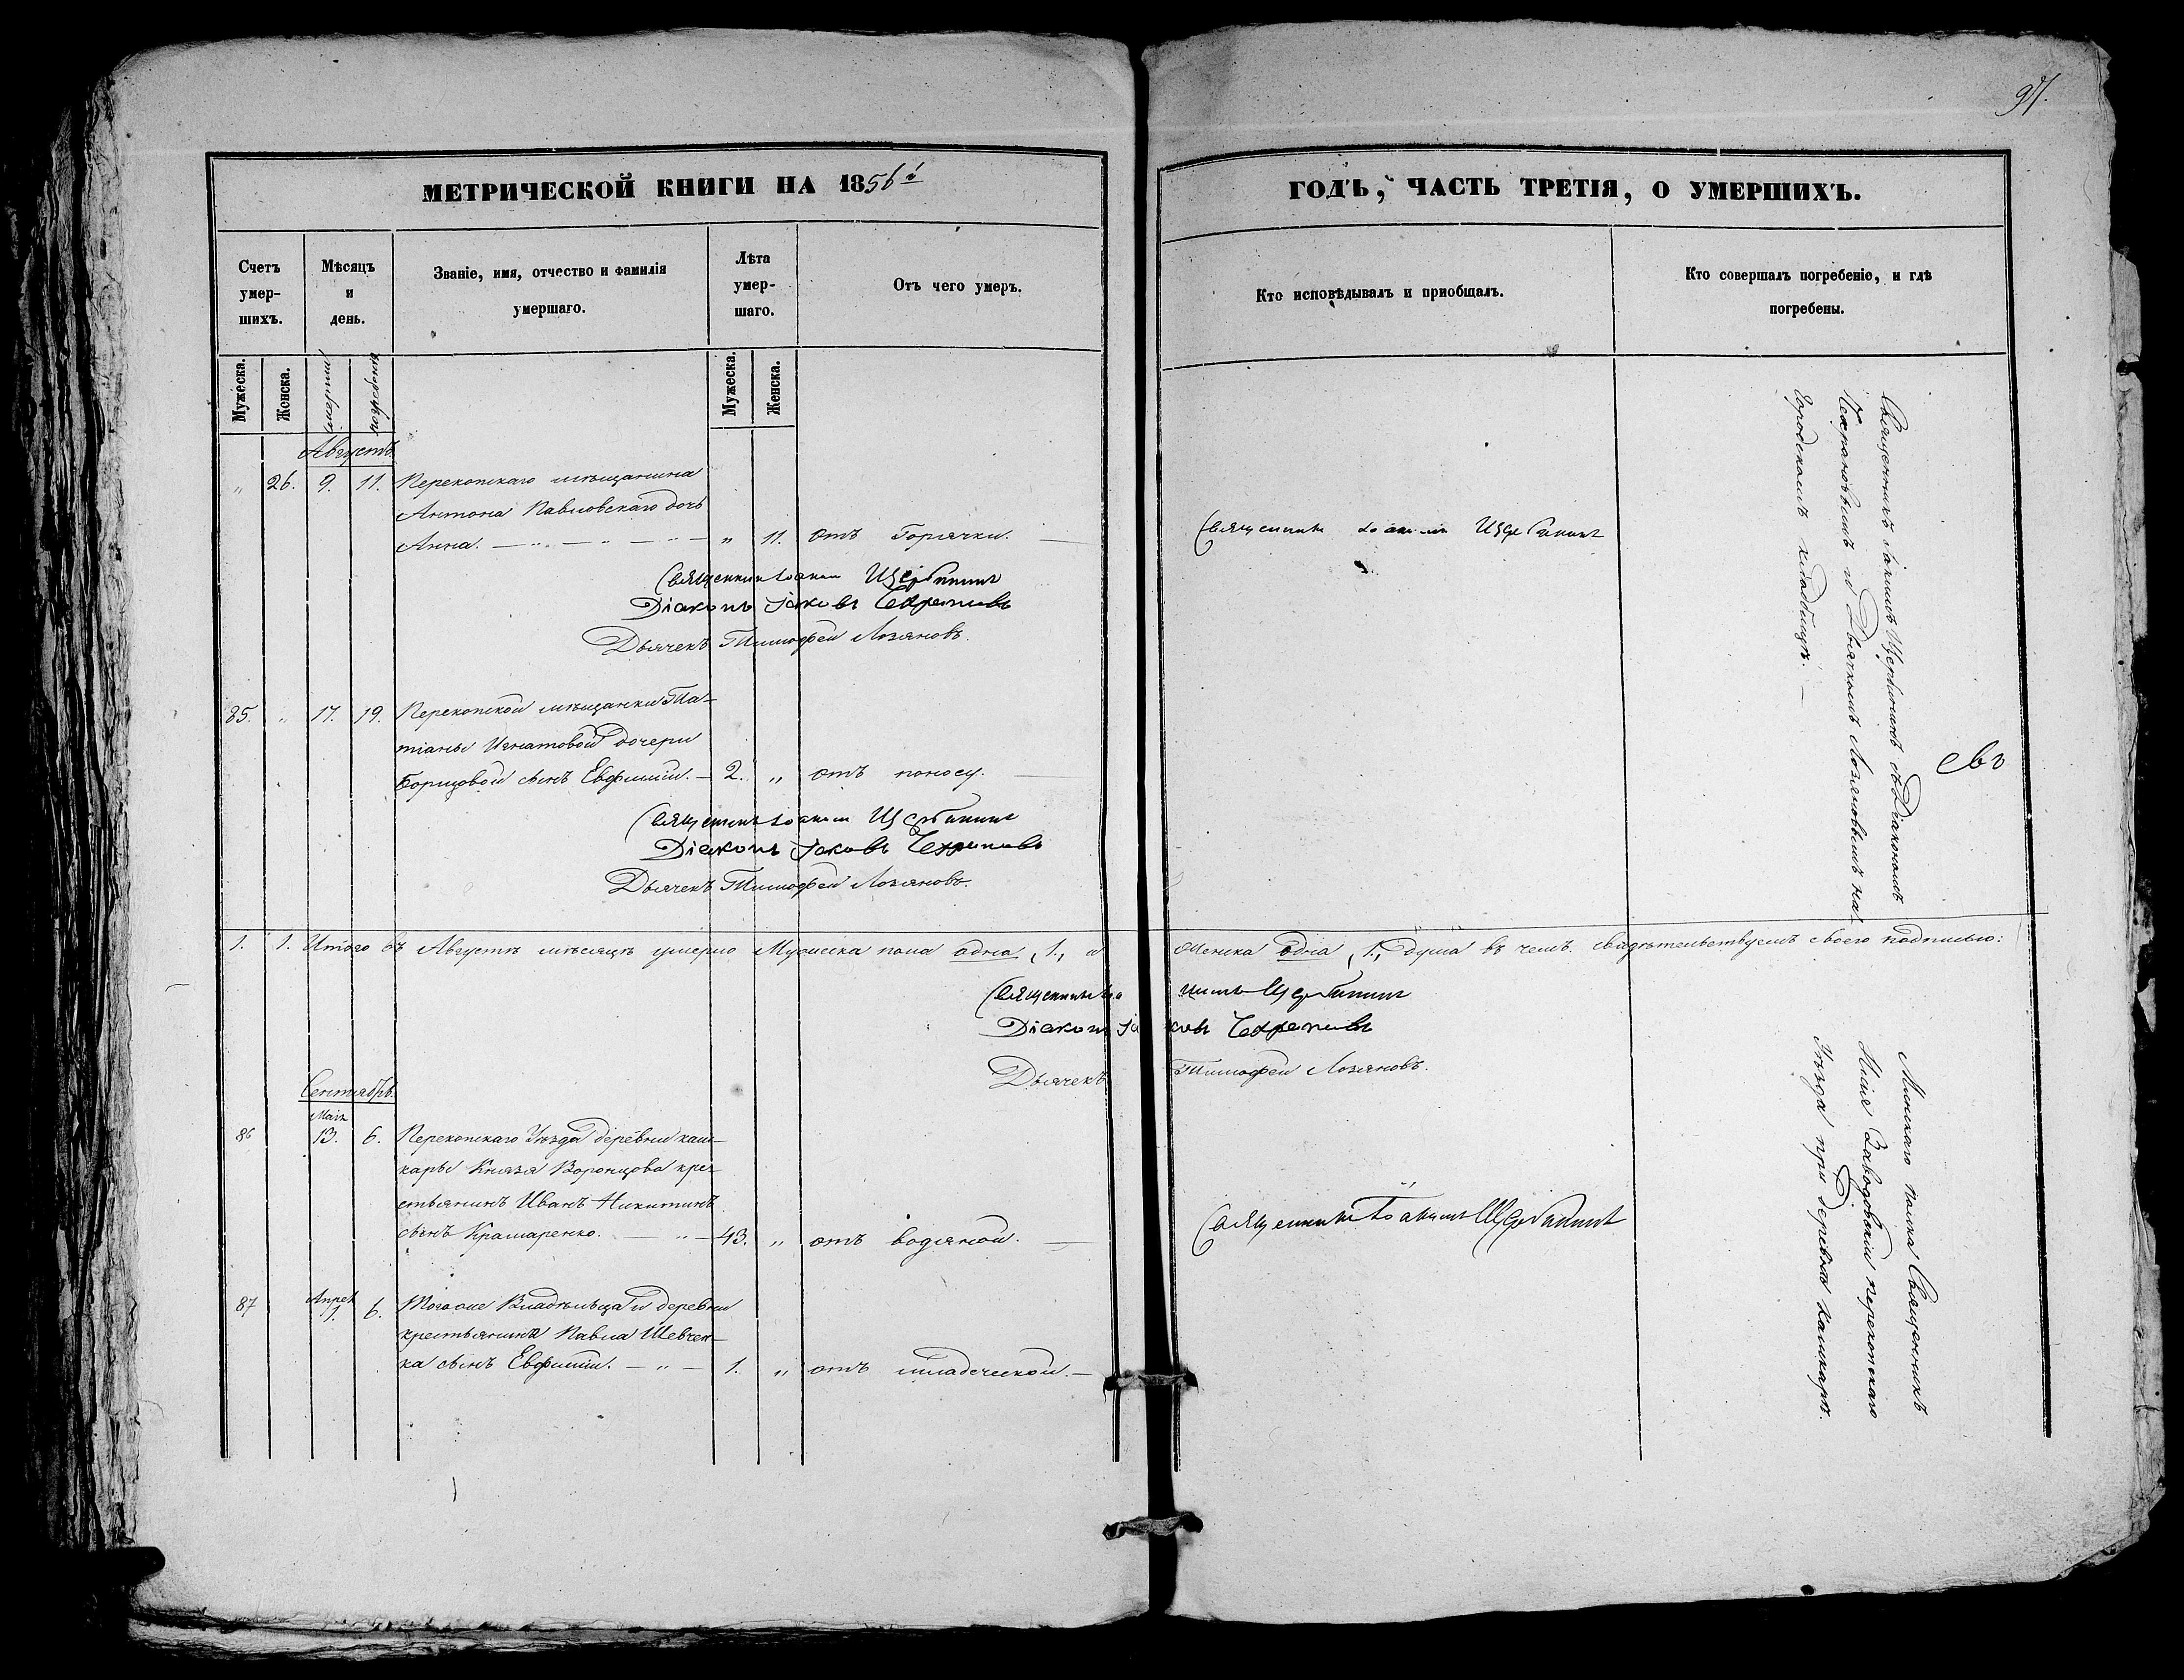 97.
МЕТРИЧЕСКОЙ КНИГИ НА 1856й
ГОДЪ, ЧАСТЬ ТРЕТІЯ, О УМЕРШИХЪ.
Счетъ умер-шихъ.
Мѣсяцъ и день.
Званіе, имя, отчество и фамилія умершаго.
Лѣта умер-шаго.
Отъ чего умеръ.
Кто исповѣдывалъ и приобщалъ.
Кто совершалъ погребеніе, и гдѣ погребены.
Мужеска. Женска. смерти погребенія Мужеска. Женска.
Августъ.
„ 26. 9. 11. Перекопскаго мѣщанина
Антона Павловскаго дочь
Анна. „ 11. отъ Горячки.
Священникъ Іоакимъ Щербининъ
Священникъ Іоакимъ Щербининъ
Діаконъ Іаковъ
Дьячекъ Тимофей Лозяновъ.
Священникъ Іоакимъ Щербининъ съ Діакономъ
и Дьячкомъ Лозяновымъ на
Городскомъ кладбищѣ.
85. „ 17. 19. Перекопской мѣщанки Та-
тіаны Игнатовой дочери
Борщовой сынъ Евфимій. 2. „ отъ поносу.
Священникъ Іоакимъ Щербининъ
Діаконъ Іаковъ
Дьячекъ Тимофей Лозяновъ.
1. 1. Итого въ Августѣ мѣсяцѣ умерло Мужеска пола одна „1„ и Женска одна „1„ душа въ чемъ свидѣтельствуемъ своею подписью:
Священникъ Іоакимъ Щербининъ
Діаконъ Іаковъ
Дьячекъ Тимофей Лозяновъ.
Сентябрь.
Маія
86 13. 6. Перекопскаго Уѣзда деревни каш-
кары Князя Воронцова кре-
стьянинъ Иванъ Никитинъ
сынъ Крамаренко. 43. „ отъ водяной.
Священникъ Іоакимъ Щербининъ
Минскаго полка Священникъ
Илія Заводовскій перекопскаго
Уѣзда при деревнѣ кашкарѣ.
Апрел
87 1. 6. Тогоже Владѣльца и деревни
крестьянина Павла Шевчен-
ка сынъ Евфимій. 1. „ отъ младеческой.